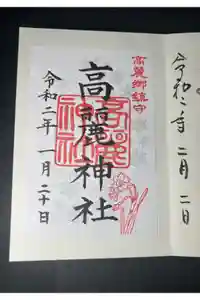 高麗郷鎮守
高麗神社
令和二年一月二十日
高麗神社
令和二年二月二日